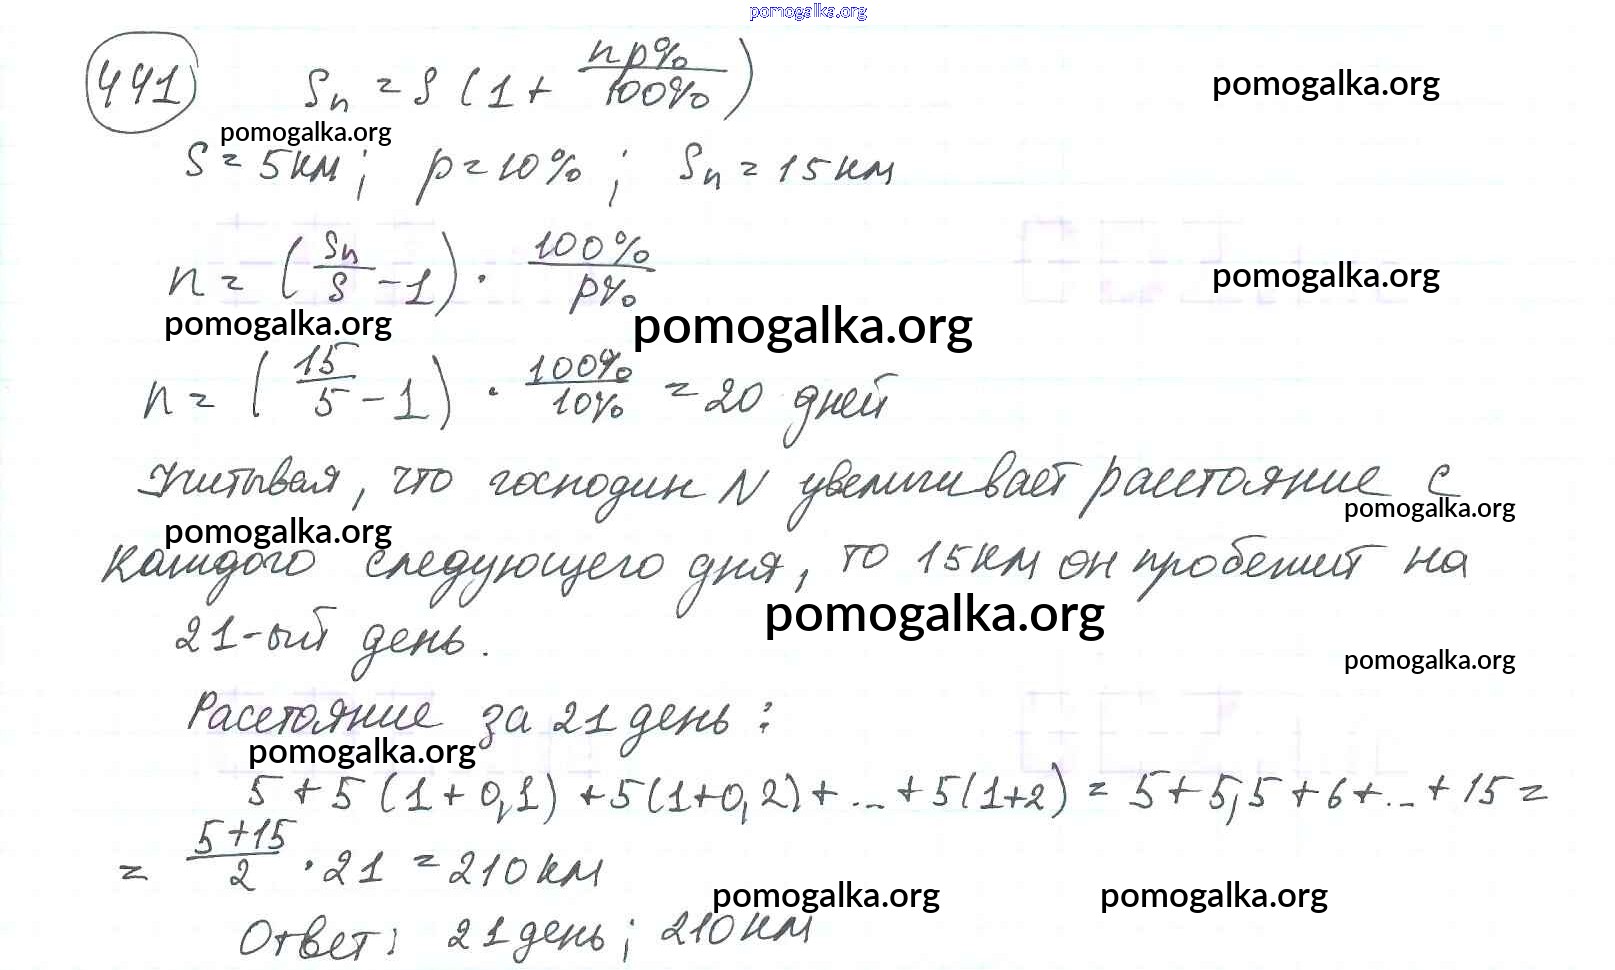 pomogalka.org
441 Sn = S (1 + np%/100%)
pomogalka.org
pomogalka.org
S = 5 км; p = 10%; Sn = 15 км
n = (Sn/S - 1) · 100%/p%
pomogalka.org
pomogalka.org
pomogalka.org
n = (15/5 - 1) · 100%/10% = 20 дней
Учитывая, что господин N увеличивает расстояние с
pomogalka.org
pomogalka.org
каждого следующего дня, то 15 км он пробежит на
pomogalka.org
21-ый день.
pomogalka.org
Расстояние за 21 день:
pomogalka.org
5 + 5 (1 + 0,1) + 5(1+0,2) + ... + 5(1+2) = 5 + 5,5 + 6 + ... + 15 =
= (5+15)/2 · 21 = 210 км
pomogalka.org
pomogalka.org
Ответ: 21 день; 210 км